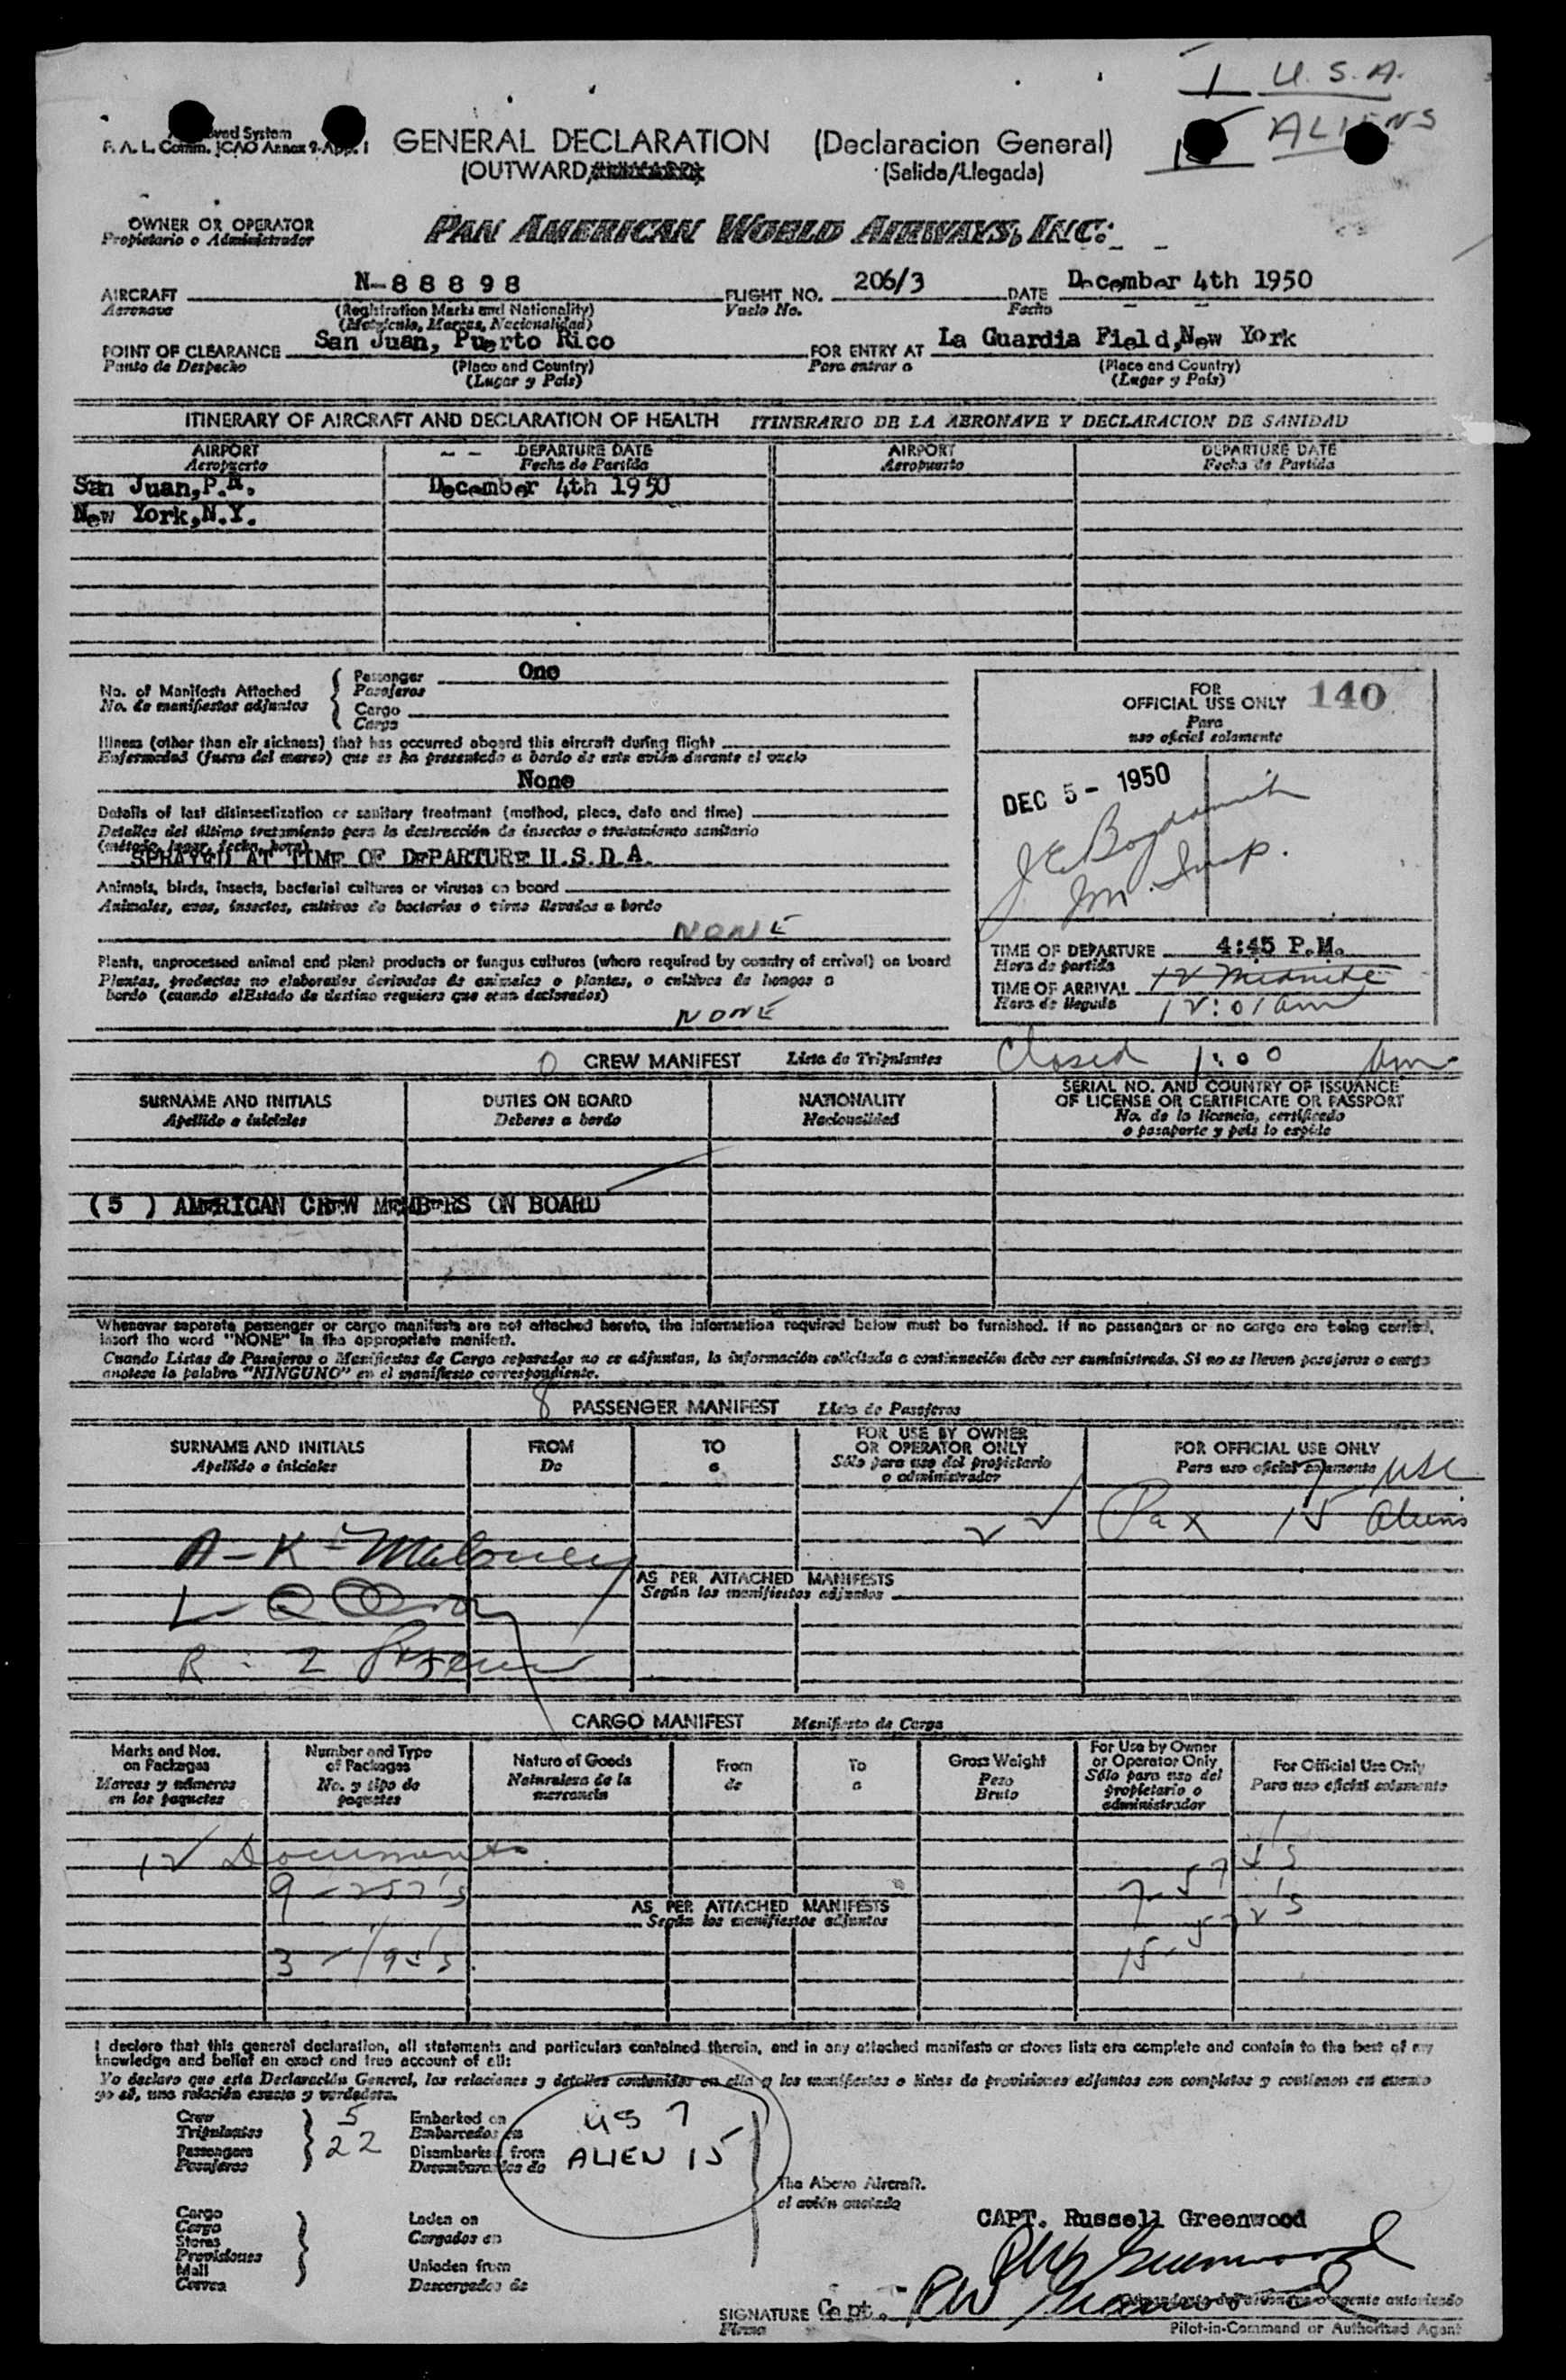 U.S.A.
ALIENS
GENERAL DECLARATION (Declaracion General)
(OUTWARD, (Salida/Llegada)
F. A. L. Comm. ICAO Annex 9-App. 1
OWNER OR OPERATOR
Propietario o Administrador
PAN AMERICAN WORLD AIRWAYS, INC.
AIRCRAFT N-88898 FLIGHT NO. 206/3 DATE December 4th 1950
Aeronave (Registration Marks and Nationality) Vuelo No. Fecha
(Matricula, Marcas, Nacionalidad)
POINT OF CLEARANCE San Juan, Puerto Rico FOR ENTRY AT La Guardia Field, New York
Punto de Despacho (Place and Country) Para entrar a (Place and Country)
(Lugar y País) (Lugar y País)
ITINERARY OF AIRCRAFT AND DECLARATION OF HEALTH ITINERARIO DE LA AERONAVE Y DECLARACION DE SANIDAD
AIRPORT DEPARTURE DATE AIRPORT DEPARTURE DATE
Aeropuerto Fecha de Partida Aeropuerto Fecha de Partida
San Juan, P.R. December 4th 1950
New York, N.Y.
No. of Manifests Attached
No. de manifiestos adjuntos
Passenger One
Pasajeros
Cargo
Carga
Illness (other than air sickness) that has occurred aboard this aircraft during flight
Enfermedad (fuera del mareo) que se ha presentado a bordo de este avión durante el vuelo
None
Details of last disinsectization or sanitary treatment (method, place, date and time)
Detalles del último tratamiento para la destrucción de insectos o tratamiento sanitario
(método, lugar, fecha, hora)
SPRAYED AT TIME OF DEPARTURE U.S.D.A.
Animals, birds, insects, bacterial cultures or viruses on board
Animales, aves, insectos, cultivos de bacterias o virus llevados a bordo
NONE
Plants, unprocessed animal and plant products or fungus cultures (where required by country of arrival) on board
Plantas, productos no elaborados derivados de animales o plantas, o cultivos de hongos a
bordo (cuando elEstado de destino requiera que sean declarados)
NONE
FOR
OFFICIAL USE ONLY 140
Para
uso oficial solamente
DEC 5 - 1950
TIME OF DEPARTURE 4:45 P.M.
Hora de partida
12 Midnite
TIME OF ARRIVAL
Hora de llegada 12:01 am
0 CREW MANIFEST Lista de Tripulantes Closed 1:00 am
SURNAME AND INITIALS DUTIES ON BOARD NATIONALITY SERIAL NO. AND COUNTRY OF ISSUANCE
OF LICENSE OR CERTIFICATE OR PASSPORT
Apellido e iniciales Deberes a bordo Nacionalidad No. de la licencia, certificado
o pasaporte y país lo expide
( 5 ) AMERICAN CREW MEMBERS ON BOARD
Whenever separate passenger or cargo manifests are not attached hereto, the information required below must be furnished. If no passengers or no cargo are being carried,
insert the word "NONE" in the appropriate manifest.
Cuando Listas de Pasajeros o Manifiestos de Cargo separados no se adjuntan, la información solicitada a continuación debe ser suministrada. Si no se llevan pasajeros o carga
anotese la palabra "NINGUNO" en el manifiesto correspondiente.
8 PASSENGER MANIFEST Lista de Pasajeros
SURNAME AND INITIALS FROM TO FOR USE BY OWNER
OR OPERATOR ONLY FOR OFFICIAL USE ONLY
Apellido e iniciales De a Sólo para uso del propietario
o administrador Para uso oficial solamente
7 USC
22 Pax 15 Aliens
A-K-Maloney
AS PER ATTACHED MANIFESTS
Según los manifiestos adjuntos
CARGO MANIFEST Manifiesto de Carga
Marks and Nos.
on Packages
Marcas y números
en los paquetes
Number and Type
of Packages
No. y tipo de
paquetes
Nature of Goods
Naturaleza de la
mercancía
From
de
To
a
Gross Weight
Peso
Bruto
For Use by Owner
or Operator Only
Sólo para uso del
propietario o
administrador
For Official Use Only
Para uso oficial solamente
12 Documents
9 - 257's
AS PER ATTACHED MANIFESTS
Según los manifiestos adjuntos
I declare that this general declaration, all statements and particulars contained therein, and in any attached manifests or stores lists are complete and contain to the best of my
knowledge and belief an exact and true account of all:
Yo declaro que esta Declaración General, las relaciones y detalles contenidos en ella y los manifiestos o listas de provisiones adjuntos son completos y contienen en cuanto
yo sé, una relación exacta y verdadera.
Crew 5 Embarked on US 7
Tripulantes Embarcados en
Passengers 22 Disembarked from ALIEN 15
Pasajeros Desembarcados de
The Above Aircraft.
el avión anotado
Cargo
Cargo
Stores
Provisiones
Mail
Correo
Laden on
Cargados en
Unladen from
Descargados de
CAPT. Russell Greenwood
RW Greenwood
SIGNATURE Capt. RW Greenwood
Firma
Pilot-in-Command or Authorized Agent